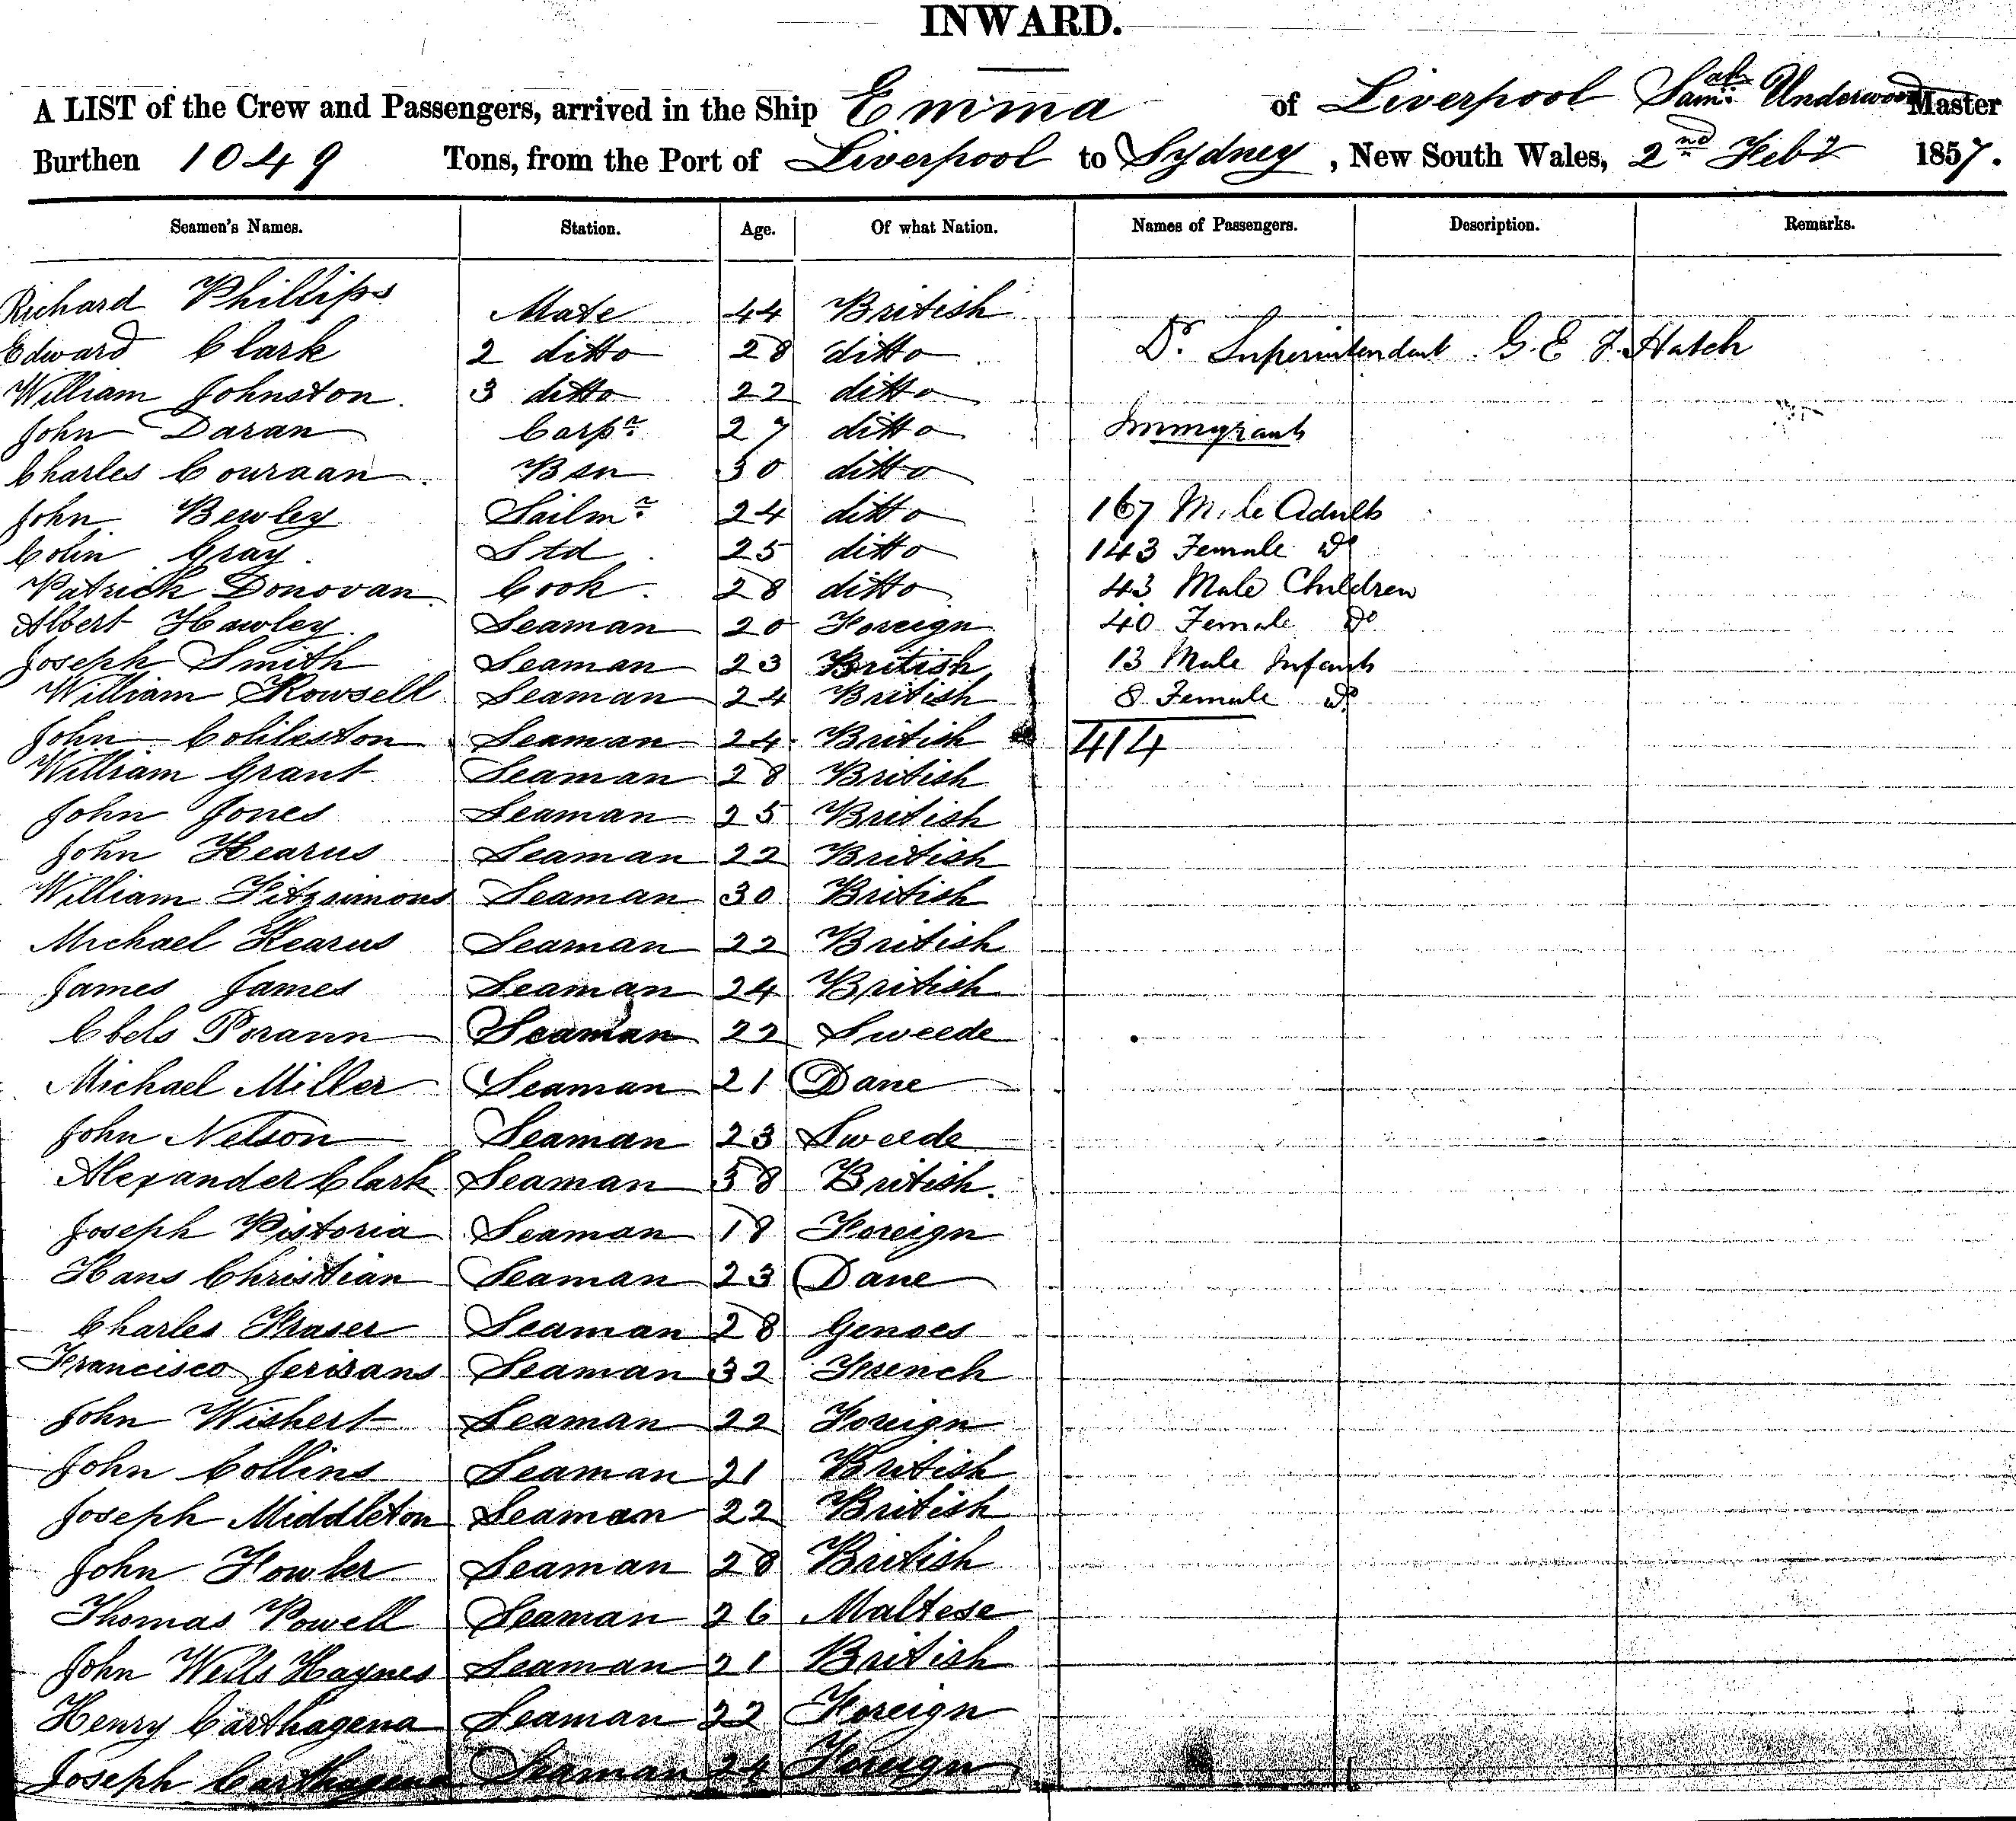 INWARD.
A LIST of the Crew and Passengers, arrived in the Ship Emma of Liverpool Saml. Underwood Master
Burthen 1049 Tons, from the Port of Liverpool to Sydney, New South Wales, 2nd Feby 1857.
Seamen's Names. Station. Age. Of what Nation. Names of Passengers. Description. Remarks.
Richard Phillips Mate 44 British
Edward Clark 2 ditto 28 ditto Dr. Superintendent G. E. F. Hatch
William Johnston. 3 ditto 22 ditto
John Daran Carpr. 27 ditto Immigrants
Charles Couraan Bsn 30 ditto
John Bewley Sailmr. 24 ditto 167 Male Adults
Colin Gray Std 25 ditto 143 Female Do
Patrick Donovan Cook 28 ditto 43 Male Children
Albert Hawley Seaman 20 Foreign 40 Female Do
Joseph Smith Seaman 23 British 13 Male Infants
William Rowsell Seaman 24 British 8 Female Do
John Seaman 24 British 414
William Grant Seaman 28 British
John Jones Seaman 25 British
John Hearus Seaman 22 British
William Fitzsimons Seaman 30 British
Michael Kearus Seaman 22 British
James James Seaman 24 British
Seaman 22 Sweede
Michael Miller Seaman 21 Dane
John Nelson Seaman 23 Sweede
Alexander Clark Seaman 38 British.
Joseph Pistoria Seaman 18 Foreign
Hans Christian Seaman 23 Dane
Charles Fraser Seaman 28 Genoes
Francisco Seaman 32 French
John Wishert Seaman 22 Foreign
John Collins Seaman 21 British
Joseph Middleton Seaman 22 British
John Fowler Seaman 28 British
Thomas Powell Seaman 26 Maltese
John Wells Haynes Seaman 21 British
Henry Carthagena Seaman 22 Foreign
Joseph Carthagena Seaman 24 Foreign